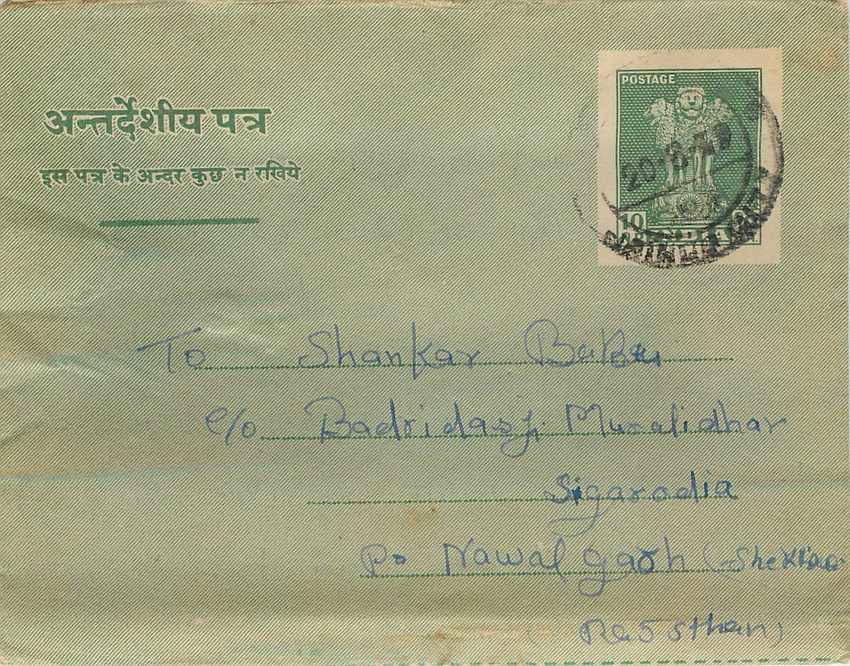 अन्तर्देशीय पत्र
इस पत्र के अन्दर कुछ न रखिये
POSTAGE
10
To Shankar Babu
c/o Badridasji Muralidhar
Sigarodia
Po Nawalgarh